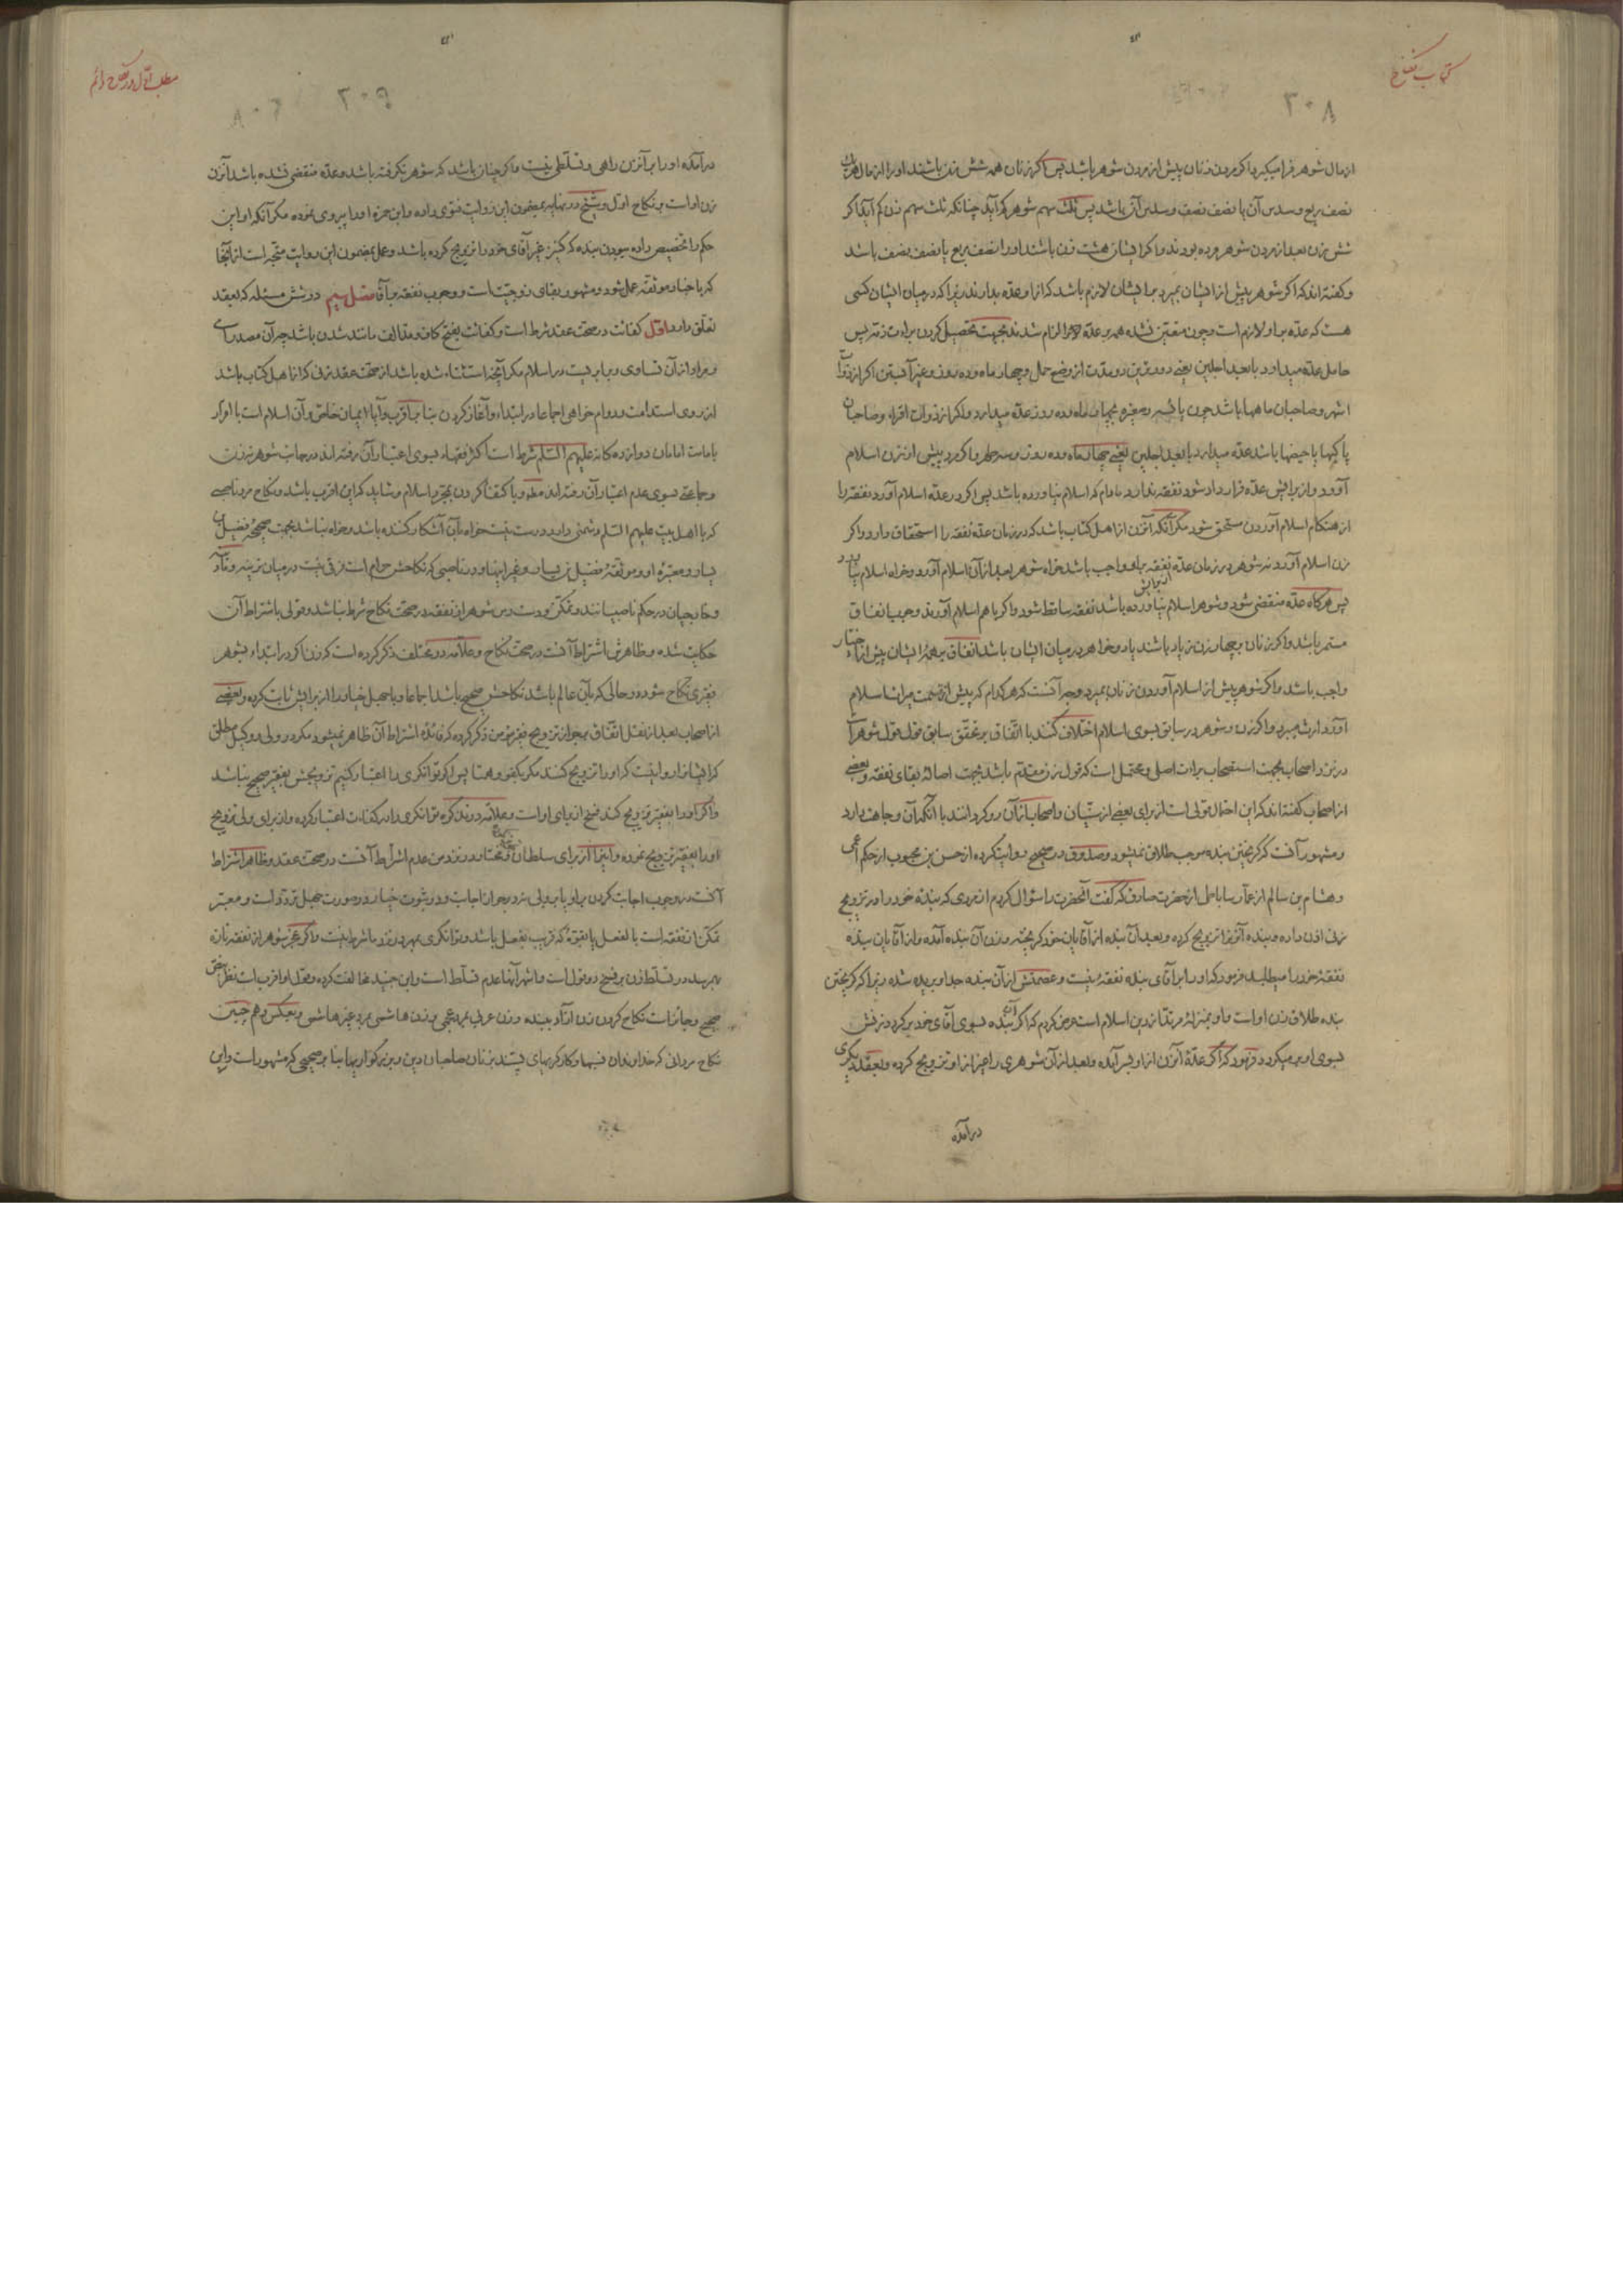 کتاب نکاح
۲۰۸
از مال شوهر فرا میگیرد و اگر مردن زنان پیش از مردن شوهر باشد پس اگر زنان همه شش زن باشند او را از مال هر یک
نصف ربع و سدس آن یا نصف نصف و سدس آن باشد پس ثلث سهم شوهر کم آید چنانکه ثلث سهم زن کم آید اگر
شش زن بعد از مردن شوهر مرده بودند و اگر ایشان هشت زن باشند او را نصف ربع یا نصف نصف باشد
و گفته‌اند که اگر شوهر پیش از ایشان بمیرد بر ایشان لازم باشد که از او عده بدارند زیرا که در میان ایشان کسی
هست که عده بر او لازم است و چون متعین نشده همه بر عده الزام شدند بجهت تحصیل کردن براءت ذمه پس
حامل عده میدارد با بعد اجلین یعنی دورترین دو مدت از وضع حمل و چهار ماه و ده روز و غیر آبستن اگر از ذوات
اشهر و صاحبان ماهها باشد چون یائسه و صغیره بچهار ماه و ده روز عده میدارد و اگر از ذوات اقراء و صاحبان
پاکیها یا حیضها باشد عده میدارد با بعد اجلین یعنی چهار ماه و ده روز و سه طهر و اگر مرد پیش از زن اسلام
آورد و از برایش عده قرار داد شود نفقه ندارد مادام که اسلام نیاورده باشد پس اگر در عده اسلام آورد نفقه را
از هنگام اسلام آوردن مستحق شود مگر آنکه آنزن از اهل کتاب باشد که در زمان عده نفقه را استحقاق دارد و اگر
زن اسلام آورد نه شوهر در زمان عده نفقه بر او واجب باشد خواه شوهر بعد از آن اسلام آورد و خواه اسلام نیاورد
پس هرگاه عده منقضی شود و شوهر اسلام نیاورده باشد نفقه ساقط شود و اگر با هم اسلام آورند وجوب انفاق
مستمر باشد و اگر زنان بچهار زن زیاد باشند یا دو خواهر در میان ایشان باشد انفاق بر همه ایشان پیش از اختیار
واجب باشد و اگر شوهر پیش از اسلام آوردن زنان بمیرد وجه آنست که هر کدام که پیش از قسمت میراث اسلام
آورد ارث میبرد و اگر زن و شوهر در سابق بسوی اسلام اختلاف کنند با اتفاق بر تحقق سابق قول قول شوهر است
در نزد اصحاب بجهت استصحاب براءت اصلی و محتمل است که قول زن مقدم باشد بجهت اصاله بقای نفقه و بعضی
از اصحاب گفته‌اند که این احتمال قولی است از برای بعضی از سنیان و اصحاب از آن رو گردانند با آنکه آن وجاهت دارد
و مشهور آنست که گریختن بنده موجب طلاق نمیشود و صدوق در صحیح روایت کرده از حسن بن محبوب از حکم اعمی
و هشام بن سالم از عمار ساباطی از حضرت صادق که گفت آنحضرت را سؤال کردم از مردی که بنده خود را در تزویج
زنی اذن داده و بنده آنزن را تزویج کرده و بعد آن بنده از آقایان خود گریخته و زن آن بنده آمده و از آقایان بنده
نفقه خود را میطلبد فرمود که او را بر آقای بنده نفقه نیست و عصمتش از آن بنده جدا و بریده شده زیرا که گریختن
بنده طلاق زن او است و او بمنزله مرتد از دین اسلام است عرض کردم که اگر آن بنده بسوی آقای خود برگردد زنش
بسوی او بر میگردد فرمود که اگر عده آنزن از او بسر آمده و بعد از آن شوهری را غیر از او تزویج کرده و بعقد دیگری
درآمده
مطلب اول در نکاح دائم
۲۰۹
درآمده او را بر آنزن راهی و تسلطی نیست و اگر چنان باشد که شوهر نگرفته باشد و عده منقضی نشده باشد آنزن
زن او است بنکاح اول و شیخ در نهایه بمضمون این روایت فتوی داده و ابن حمزه او را پیروی نموده مگر آنکه او این
حکم را تخصیص داده ببودن بنده که کنیز غیر آقای خود را تزویج کرده باشد و عمل بمضمون این روایت متجه است از آنجا
که باخبار موثقه عمل شود و مشهور بقای زوجیت است و وجوب نفقه بر آقا فصل سیم در شش مسئله که بعقد
تعلق دارد اول کفائت در صحت عقد شرط است و کفائت بفتح کاف و مد الف مانند شدن باشد چه آن مصدر است
و مراد از آن تساوی و برابریست در اسلام مگر آنچه استثناء شده باشد از صحت عقد زنی که از اهل کتاب باشد
از روی استدامت و دوام خواهی اجماعا در ابتداء و آغاز کردن بنا بر اقرب و آیا ایمان خاص و آن اسلام است با اقرار
بامامت امامان دوازده‌گانه علیهم السلام شرط است اکثر فقهاء بسوی اعتبار آن رفته‌اند در جانب شوهر نه زن
و جماعتی بسوی عدم اعتبار آن رفته‌اند مطلقا و باکتفا کردن بمجرد اسلام و شاید که این اقرب باشد و نکاح مرد ناصبی
که با اهل بیت علیهم السلام دشمنی دارد درست نیست خواه بآن آشکار کننده باشد و خواه نباشد بجهت صحیحه فضیل بن
یسار و معتبره او و موثقه فضیل بن یسار و غیر اینها و در ناصبی که نکاحش حرام است فرقی نیست در میان زینه و نادّه
و خارجیان در حکم ناصبیانند و تمکن و دست رس شوهر از نفقه در صحت نکاح شرط نباشد و قولی باشتراط آن
حکایت شده و ظاهرش اشتراط آنست در صحت نکاح و علامه در مختلف ذکر کرده است که زن اگر در ابتداء بشوهر
فقیری نکاح شود در حالی که بآن عالم باشد نکاحش صحیح باشد اجماعا و با جهل خیار را از برایش ثابت کرده و بعضی
از اصحاب بعد از نقل اتفاق بجواز تزویج فقیر مؤمن ذکر کرده که فائده اشتراط آن ظاهر نمیشود مگر در ولی و وکیل مطلق
که ایشان را روا نیست که او را تزویج کنند مگر بکفو و همتا پس اگر توانگری را اعتبار کنیم تزویجش بفقیر صحیح نباشد
و اگر او را بفقیر تزویج کند فسخ از برای او است و علامه در تذکره توانگری را در کفائت اعتبار کرده و از برای ولی تزویج
او را بفقیر تزویج نموده و آنرا از برای سلطان و مختار در نزد من عدم اشتراط آنست در صحت عقد و ظاهر اشتراط
آنست در وجوب اجابت کردن بر او یا بر ولی نه در جواز اجابت و در ثبوت خیار در صورت جهل تردد است و معتبر
تمکن از نفقه است بالفعل یا بقوه که قریب بفعل باشد و توانگری بمهر در نزد ما شرط نیست و اگر عجز شوهر از نفقه تازه
بهم رسد در تسلط زن بر فسخ دو قول است و اشهر آنها عدم تسلط است و ابن جنید مخالفت کرده و قول او اقرب است نظر بنص
صحیح و جائز است نکاح کردن زن آزاد ببنده و زن عربی بمرد عجمی و زن هاشمی بمرد غیر هاشمی و بعکس و هم چنین
نکاح مردانی که خداوندان نسبها و کارگریهای پستند بزنان صاحبان دین و بزرگواریها بنا بر صحیحی که مشهور است و این